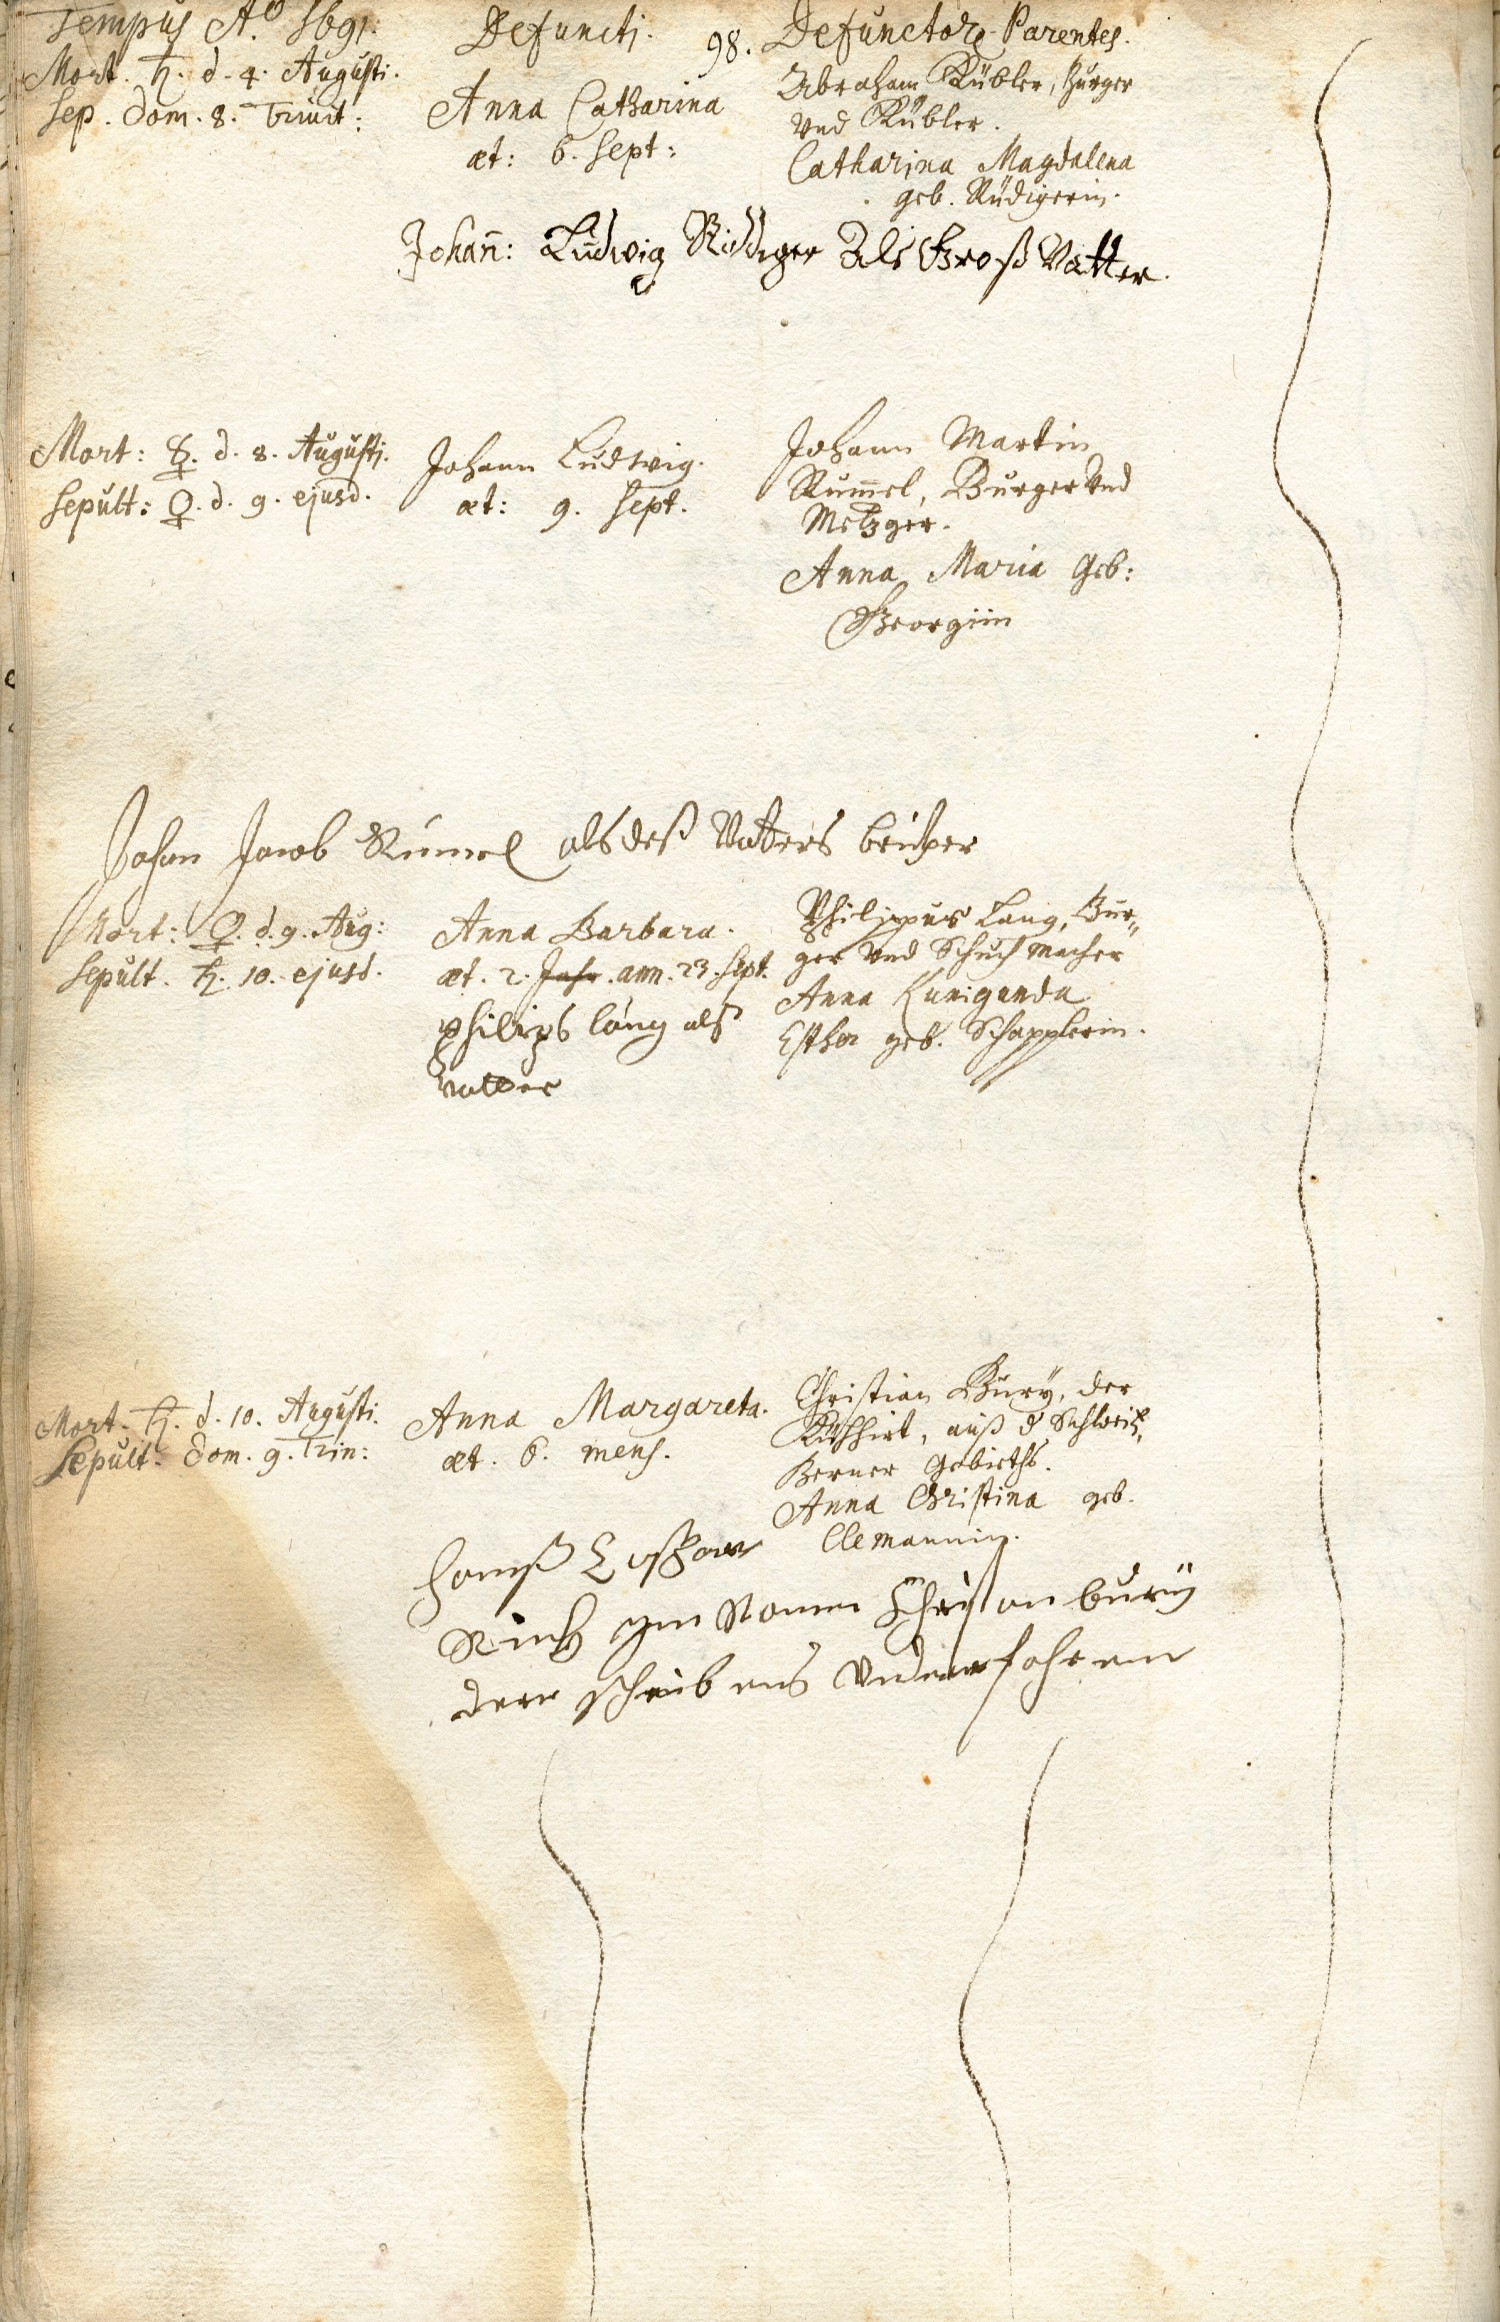 Tempus Aö. 1691.
Defuncti.
98.
Defunctorũ Parentes.
Mort. ♄. d. 4. Augusti.
Sep. Dom. 8. Trinit:
Anna Catharina
æt: 6. Sept:
Abraham Kübler, Burger
Vnd Kübler.
Catharina Magdalena
geb. Rüdigerin.
Johañ: Ludwig Rüdiger Als Groß Vatter.
Mort: d. 8. Augusti.
Sepult: ♀. d. 9. ejusd.
Johann Ludwig.
æt: 9. Sept.
Johann Martin
Rum̃el, Burger Vnd
Metzger.
Anna Maria Geb:
Georgiin
Johan Jacob Rümel als deß Vatters brüder
Mort: ♀. d. 9. Aug:
Sepult. ♄. 10. ejusd.
Anna Barbara.
æt. 2. Jahr. ann. 23. Sept.
philips lang als
vatter
Philippus Lang, Bur„
ger Vnd Schuchmacher
Anna Kunigunda
Esther geb. Schapplerin.
Mort. ♄. d. 10. Augusti.
Sepult. Dom. 9. Trin:
Anna Margareta.
æt. 6. mens.
Christian Bury, der
Kühhirt, auß d. Schweitz,
Berner Gebieths.
Anna Christina geb.
Clemannin.
Hanß
im Namen Christian bury
dere schreibens